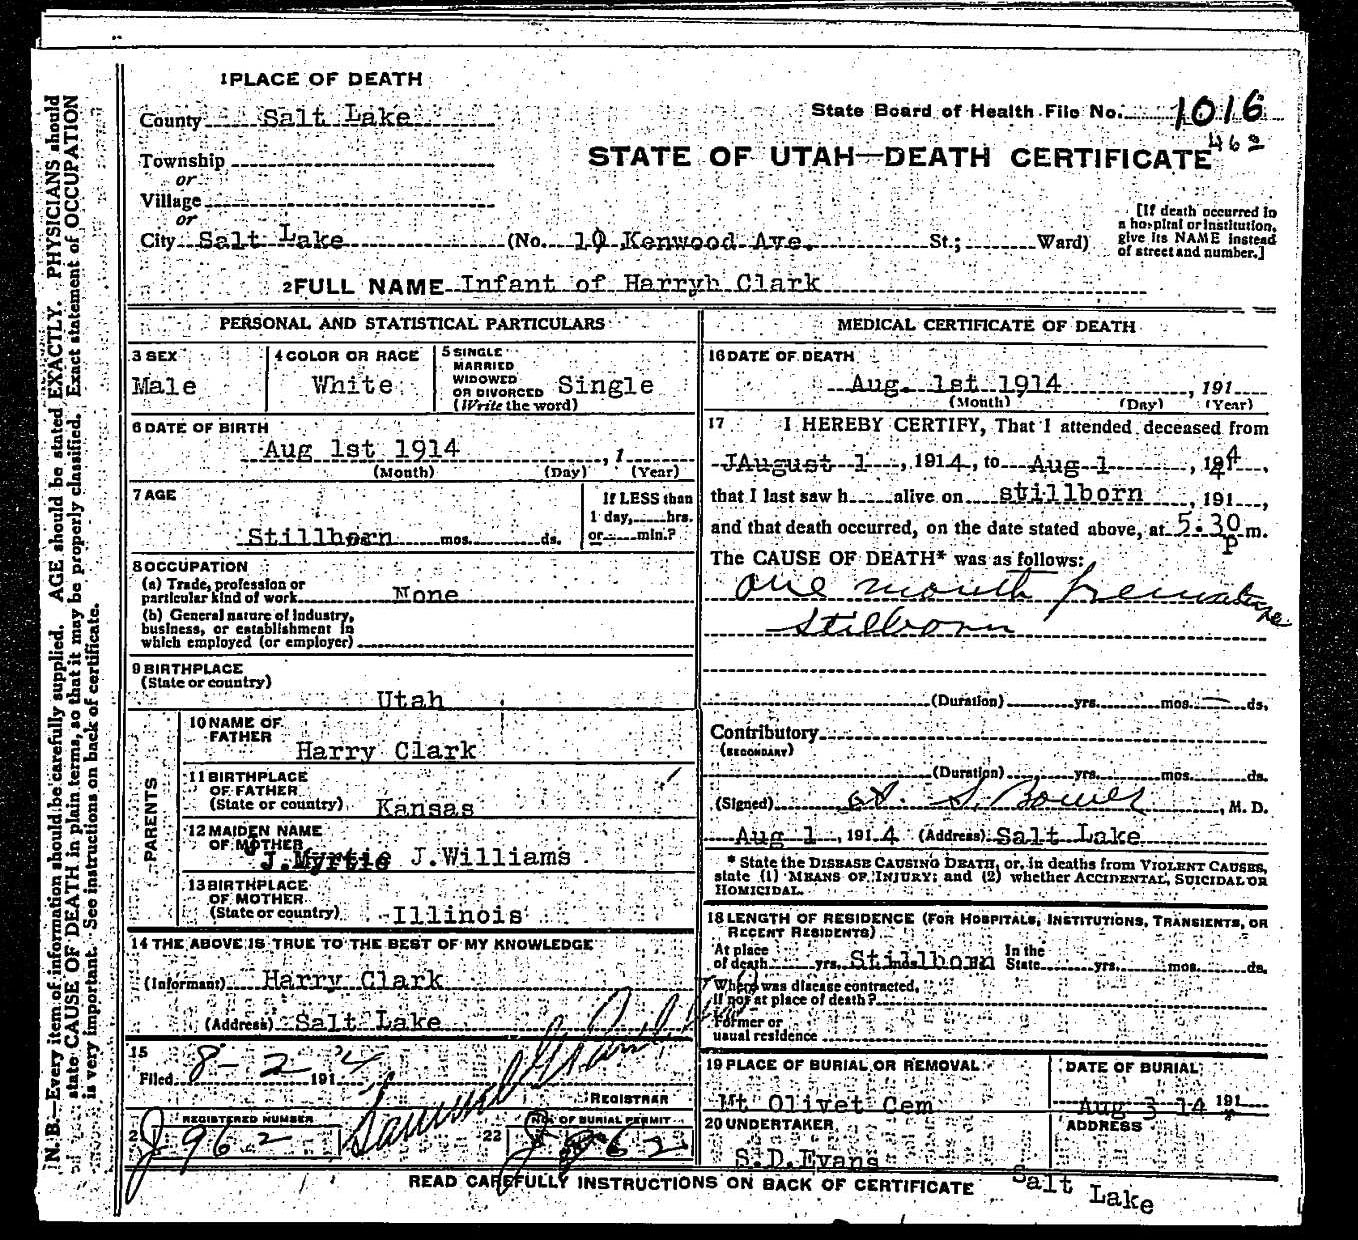 1 PLACE OF DEATH
County Salt Lake
State Board of Health File No. 1016
Township
or
Village
or
STATE OF UTAH—DEATH CERTIFICATE
City Salt Lake (No. 19 Kenwood Ave. St.; Ward)
[If death occurred in
a hospital or institution,
give its NAME instead
of street and number.]
2 FULL NAME Infant of Harryh Clark
PERSONAL AND STATISTICAL PARTICULARS
3 SEX
Male
4 COLOR OR RACE
White
5 SINGLE
MARRIED
WIDOWED
OR DIVORCED Single
(Write the word)
6 DATE OF BIRTH
Aug 1st 1914, 1
(Month) (Day) (Year)
7 AGE
Stillborn mos. ds.
If LESS than
1 day, hrs.
or min.?
8 OCCUPATION
(a) Trade, profession or
particular kind of work None
(b) General nature of industry,
business, or establishment in
which employed (or employer)
9 BIRTHPLACE
(State or country)
Utah
PARENTS
10 NAME OF
FATHER
Harry Clark
11 BIRTHPLACE
OF FATHER
(State or country) Kansas
12 MAIDEN NAME
OF MOTHER
J.Myrtie J.Williams
13 BIRTHPLACE
OF MOTHER
(State or country) Illinois
14 THE ABOVE IS TRUE TO THE BEST OF MY KNOWLEDGE
(Informant) Harry Clark
(Address) Salt Lake
15
Filed 8-2 191 4
REGISTRAR
REGISTERED NUMBER
2 J 962
NO. OF BURIAL PERMIT
22
MEDICAL CERTIFICATE OF DEATH
16 DATE OF DEATH
Aug. 1st 1914, 191
(Month) (Day) (Year)
17 I HEREBY CERTIFY, That I attended deceased from
JAugust 1, 1914, to Aug 1, 191 4
that I last saw h alive on stillborn, 191
and that death occurred, on the date stated above, at 5.30 m.
P
The CAUSE OF DEATH* was as follows:
one month premature
Stilborn
(Duration) yrs. mos. ds.
Contributory
(SECONDARY)
(Duration) yrs. mos. ds.
(Signed) S. Bower, M. D.
Aug 1, 191 4 (Address) Salt Lake
* State the DISEASE CAUSING DEATH, or, in deaths from VIOLENT CAUSES,
state (1) MEANS OF INJURY; and (2) whether ACCIDENTAL, SUICIDAL OR
HOMICIDAL.
18 LENGTH OF RESIDENCE (FOR HOSPITALS, INSTITUTIONS, TRANSIENTS, OR
RECENT RESIDENTS)
At place
of death yrs. Stillborn mos. In the
State yrs. mos. ds.
Where was disease contracted,
if not at place of death?
Former or
usual residence
19 PLACE OF BURIAL OR REMOVAL
Mt Olivet Cem
DATE OF BURIAL
Aug 3 14 191
20 UNDERTAKER
S.D.Evans
ADDRESS
Salt Lake
READ CAREFULLY INSTRUCTIONS ON BACK OF CERTIFICATE
N. B.—Every item of information should be carefully supplied. AGE should be stated EXACTLY. PHYSICIANS should
state CAUSE OF DEATH in plain terms, so that it may be properly classified. Exact statement of OCCUPATION
is very important. See instructions on back of certificate.